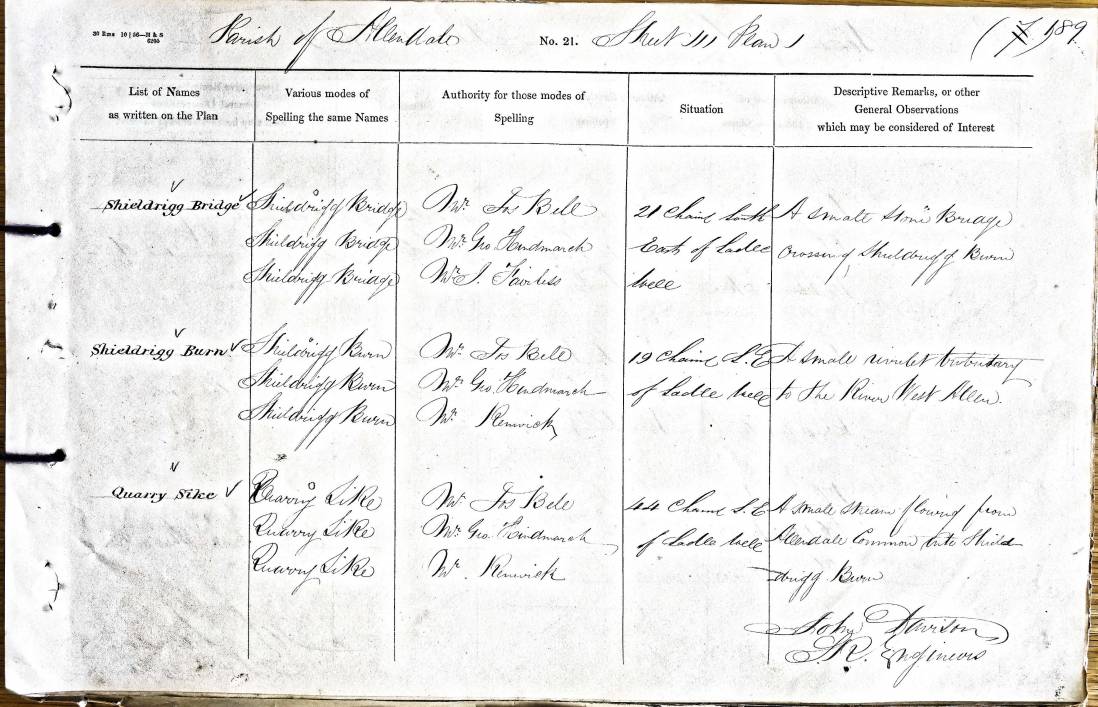 30 Rms 10 | 56—H & S
6205
Parish of Allendale No. 21. Sheet 111 Plan 1 189
List of Names
as written on the Plan
Various modes of
Spelling the same Names
Authority for those modes of
Spelling
Situation
Descriptive Remarks, or other
General Observations
which may be considered of Interest
Shieldrigg Bridge Shieldrigg Bridge Mr. Jos Bell 21 Chains South A small stone Bridge
Shieldrigg Bridge Mr. Geo. Hindmarch East of Ladle crossing Shieldrigg Burn
Shieldrigg Bridge Mr J. Fairless Well
Shieldrigg Burn Shieldrigg Burn Mr. Jos Bell 19 Chains S.E A small rivulet tributary
Shieldrigg Burn Mr. Geo. Hindmarch of Ladle Well to the River West Allen
Shieldrigg Burn Mr. Renwick
Quarry Sike Quarry Sike Mr. Jos Bell 44 Chains S.E A small stream flowing from
Quarry Sike Mr. Geo. Hindmarch of Ladle Well Allendale Common into Shield
Quarry Sike Mr. Renwick drigg Burn
John Davison
R. Engineers